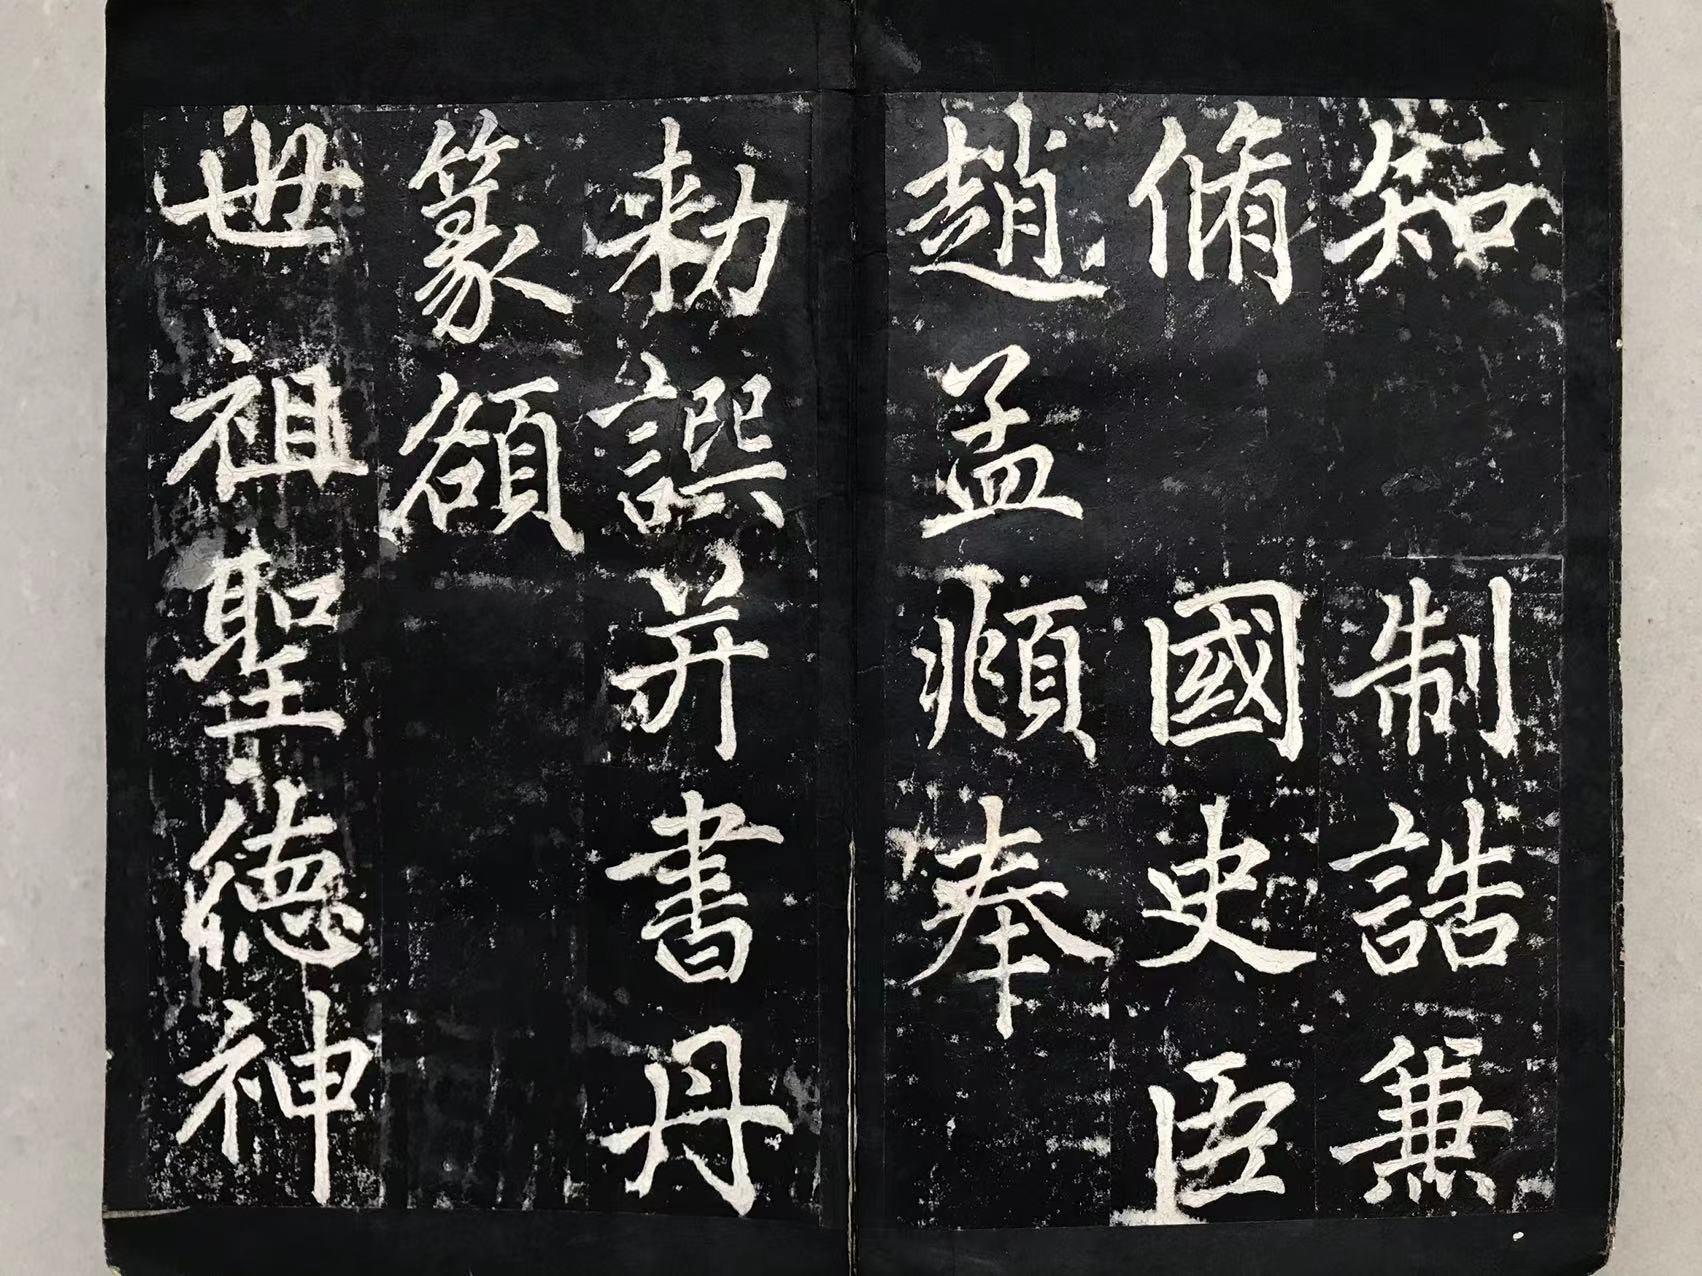 知制誥兼
脩國史臣
趙孟頫奉
勑譔并書丹
篆額
世祖聖德神